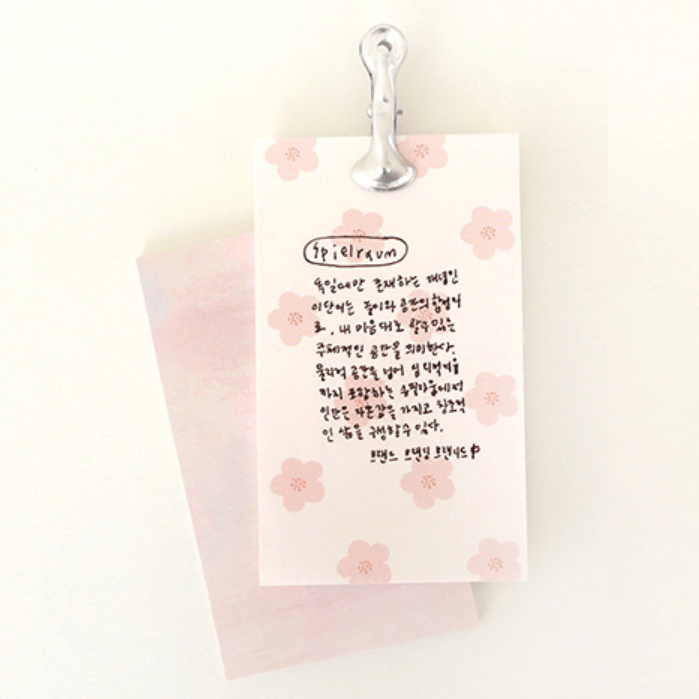 Spielraum
독일에만 존재하는 개념인
이 단어는 놀이와 공간의 합성어
로, 내 마음대로 할 수 있는
주체적인 공간을 의미한다.
물리적 공간을 넘어 심리적 여유
까지 포함하는 슈필라움에서
인간은 자존감을 가지고 창조적
인 삶을 구성할 수 있다.
브랜드 브랜딩 브랜니드 中